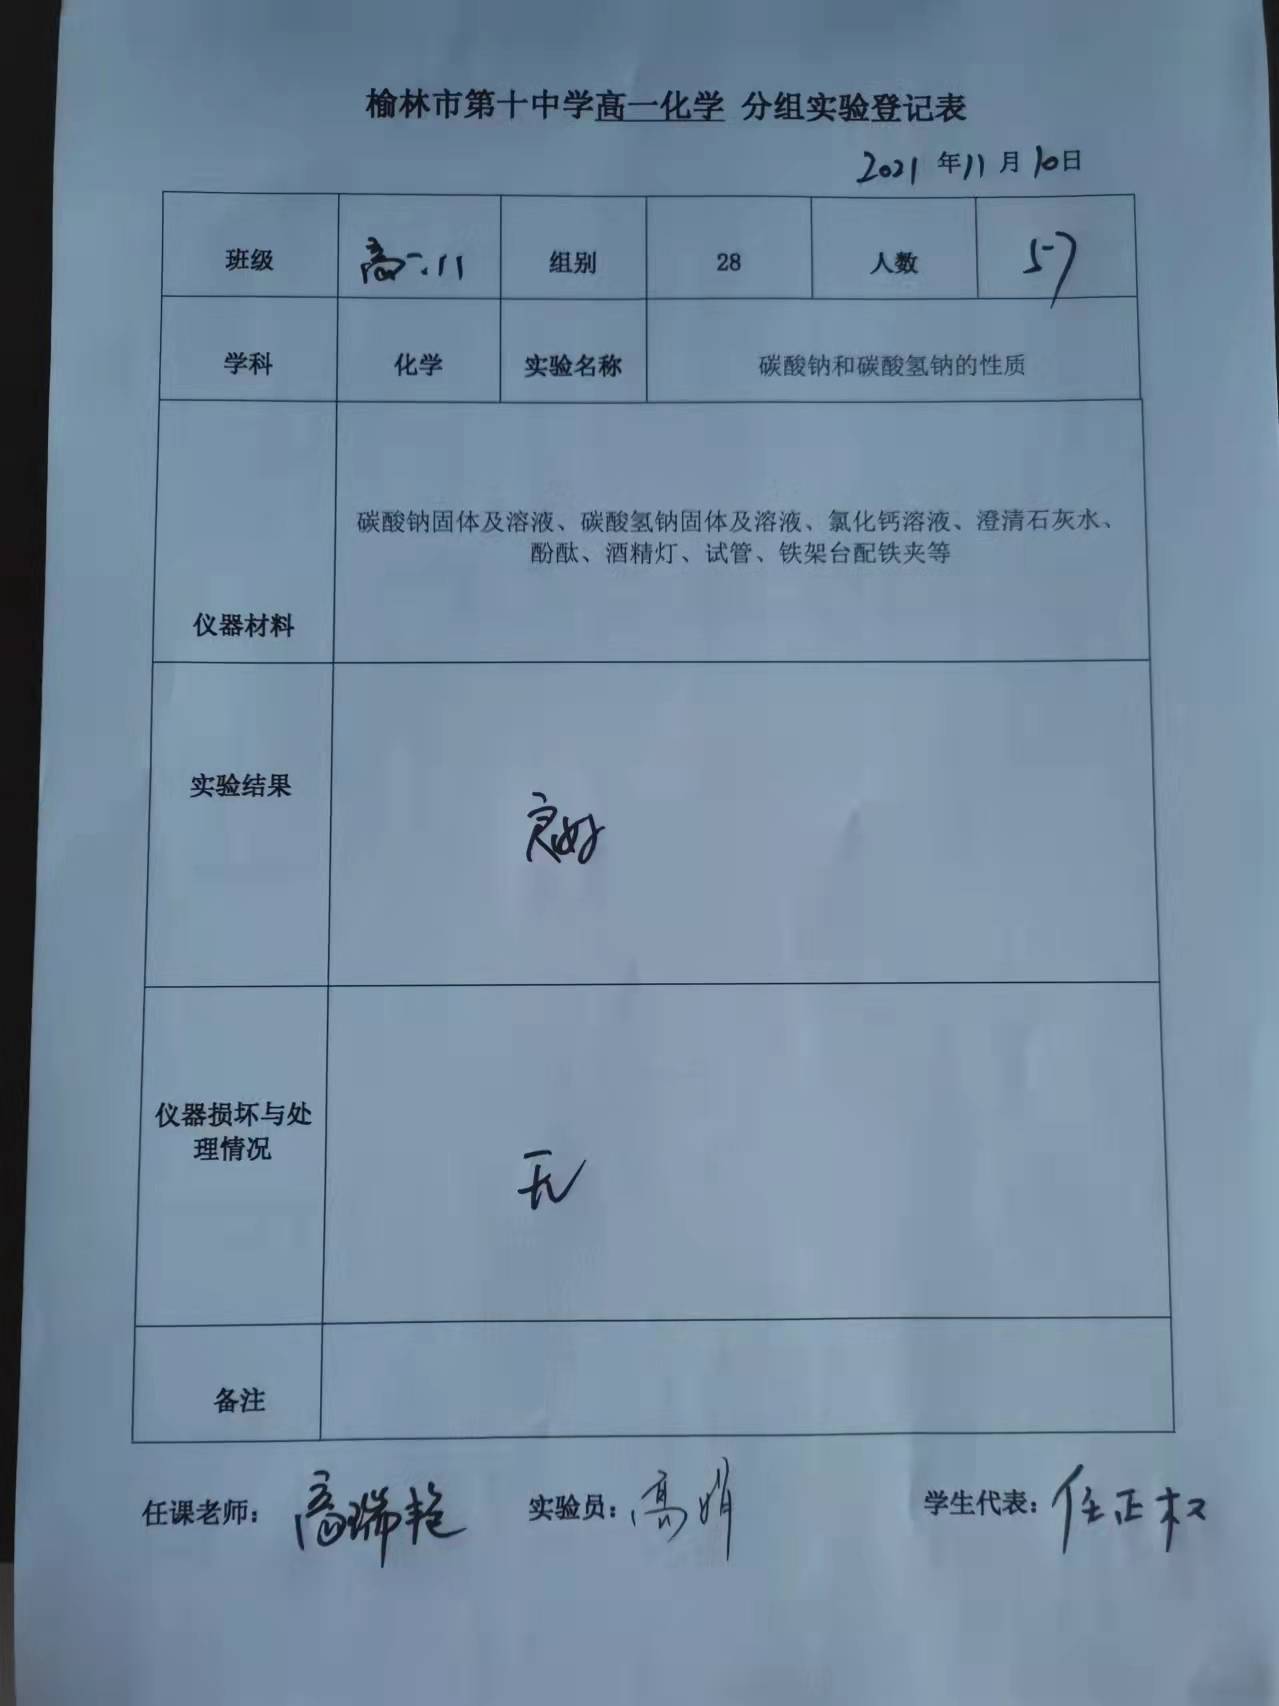 榆林市第十中学高一化学 分组实验登记表
2021年11月10日
班级 高一.11 组别 28 人数 57
学科 化学 实验名称 碳酸钠和碳酸氢钠的性质
碳酸钠固体及溶液、碳酸氢钠固体及溶液、氯化钙溶液、澄清石灰水、
酚酞、酒精灯、试管、铁架台配铁夹等
仪器材料
实验结果
良好
仪器损坏与处
理情况
无
备注
任课老师：高瑞艳 实验员：高娟 学生代表：任正权